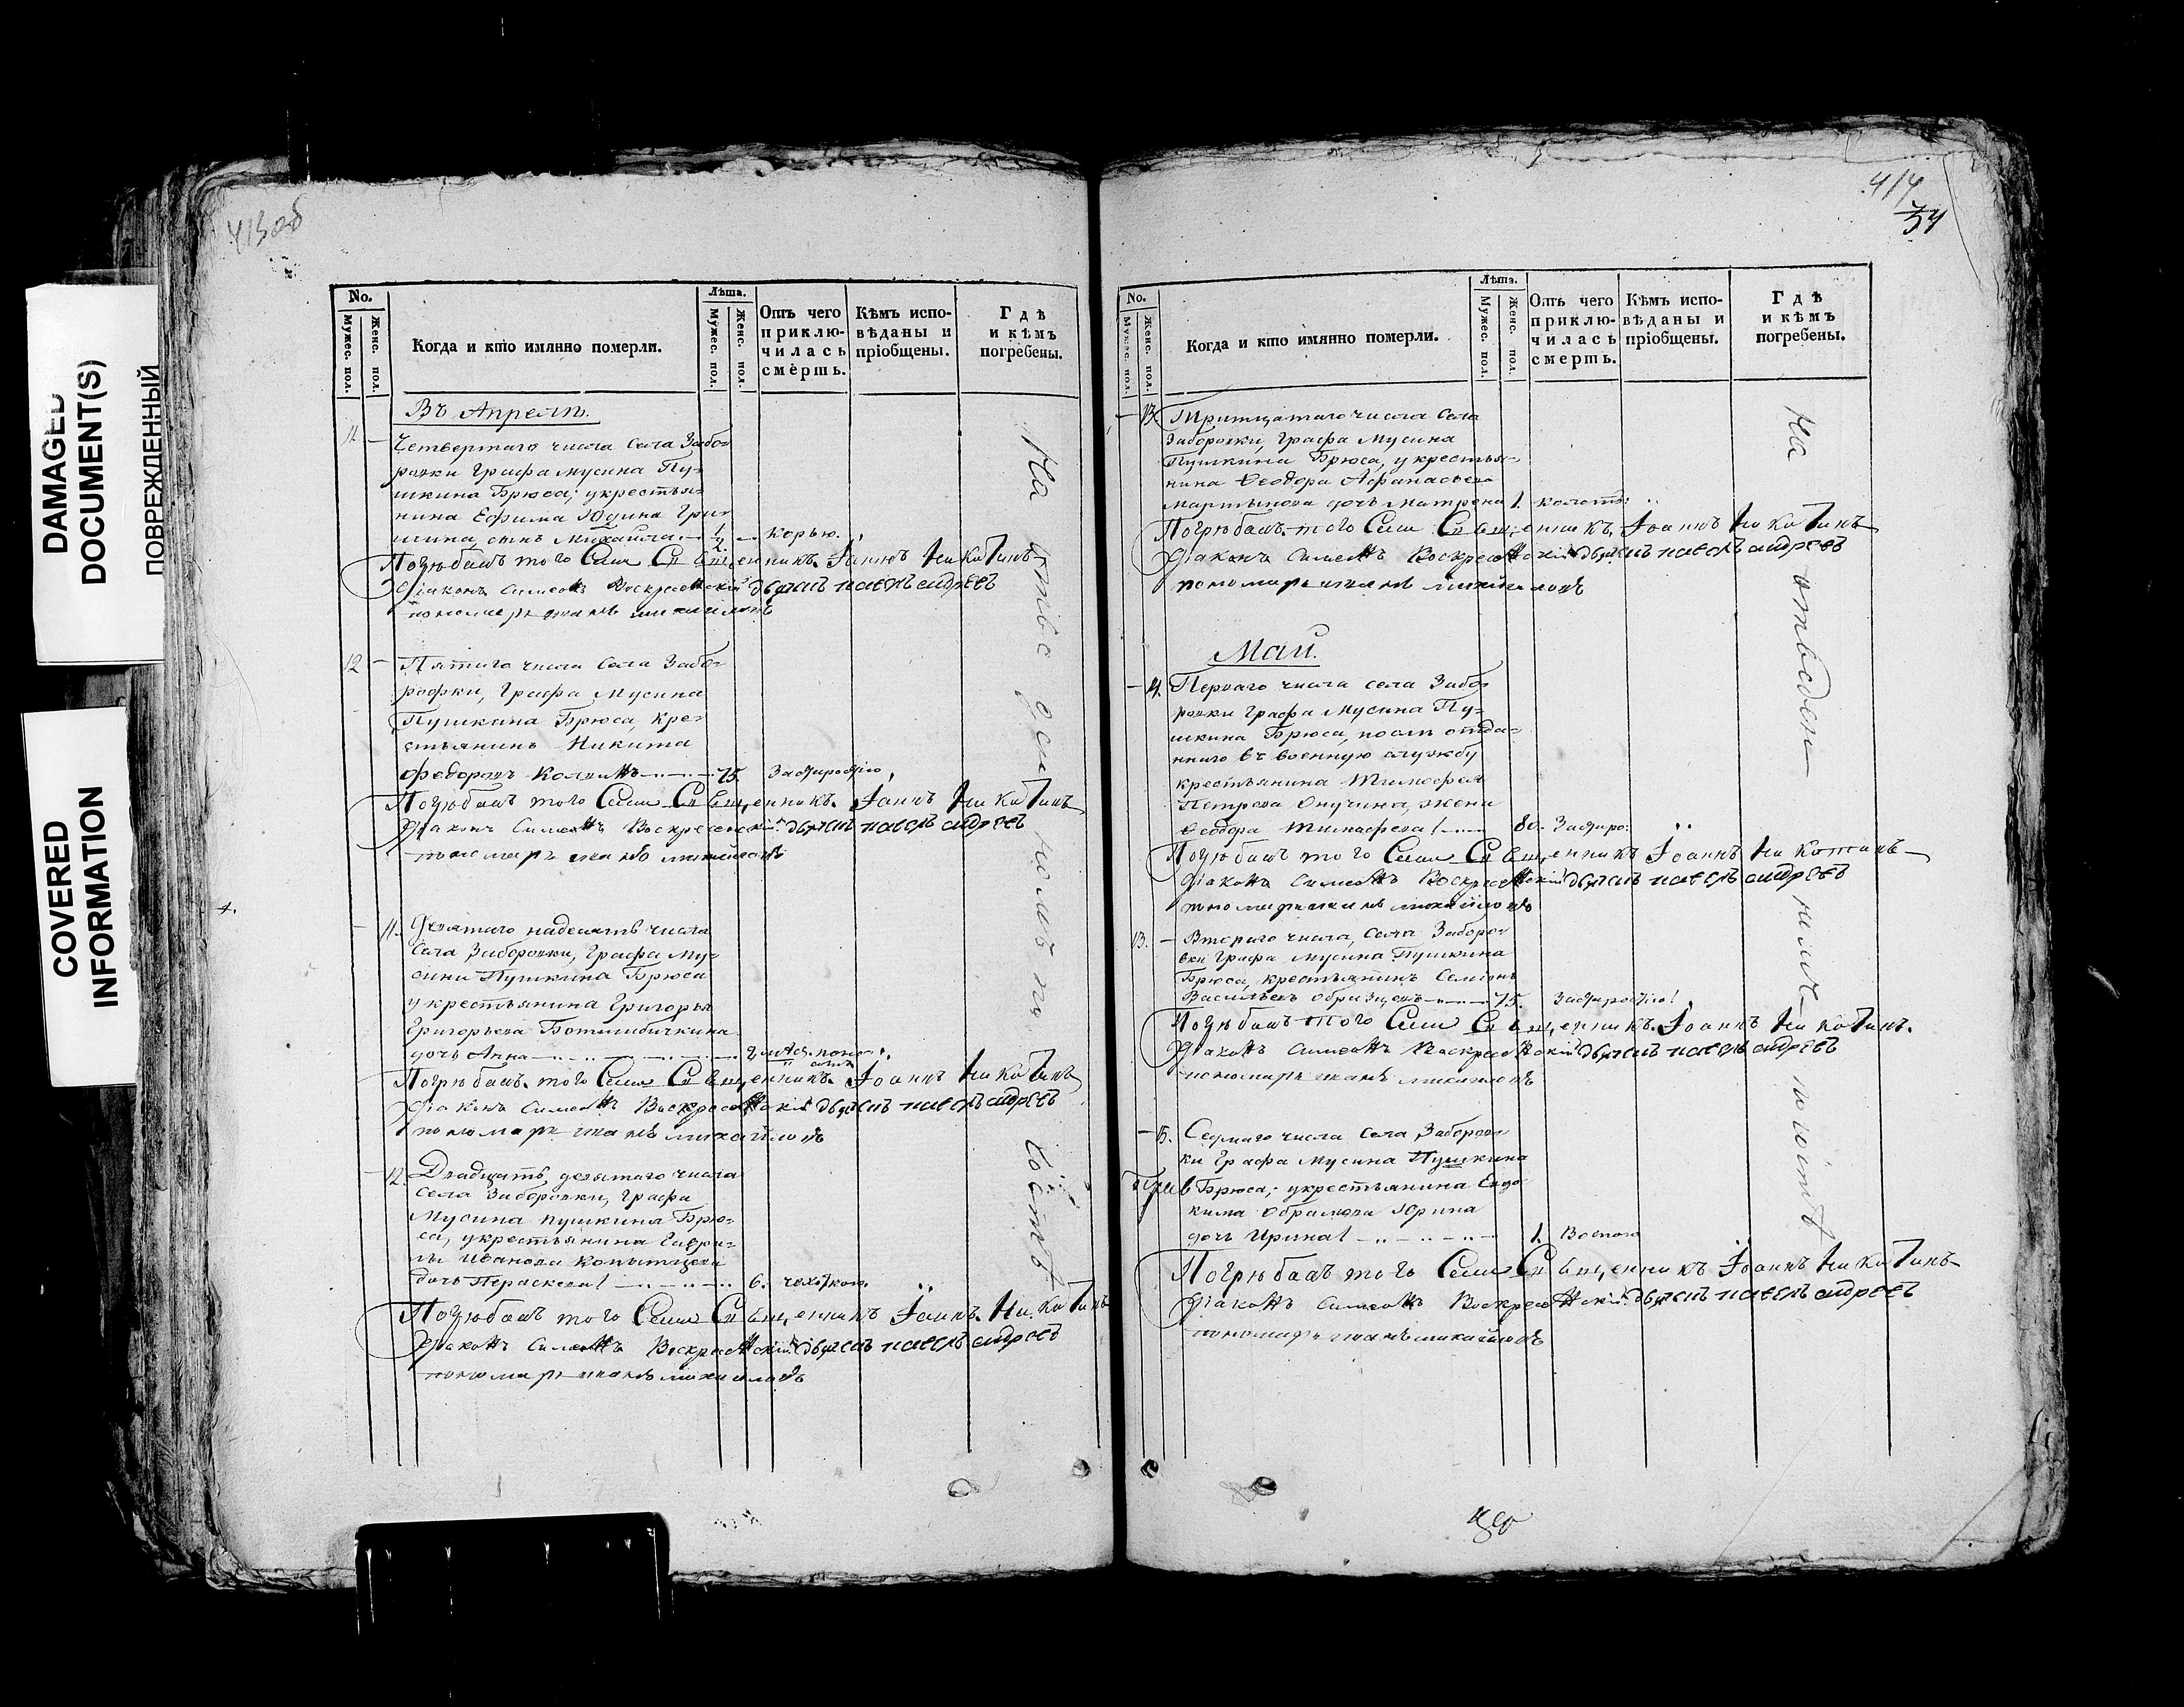 DAMAGED
DOCUMENT(S)
ПОВРЕЖДЕННЫЙ
COVERED
INFORMATION
413об
No.
Мужес. пол.
Женс. пол.
Когда и кто имянно померли.
Лѣта.
Мужес. пол.
Женс. пол.
Отъ чего
приклю-
чилась
смерть.
Кѣмъ испо-
вѣданы и
пріобщены.
Гдѣ
и кѣмъ
погребены.
Въ Апрелѣ.
11 — Четвертаго числа Села Забо-
ровки Графа Мусина Пу-
шкина Брюса; у крестья-
нина Ефима Юдина Гри-
шина, сынъ Михайла 1/2 корью.
Погрѣбалъ того Села Священникъ Іоаннъ Никитинъ
Діаконъ Симеонъ Воскресенскій дьячекъ павелъ андреевъ
пономарь иванъ михайловъ
12 — Пятаго числа Села Забо-
рофки, Графа Мусина
Пушкина Брюса, Кре-
стьянинъ Никита
Федоровъ 75.
Погрѣбалъ того Села Священникъ Іоаннъ Никитинъ
Діаконъ Симеонъ Воскресенскій дьячекъ павелъ андреевъ
пономарь иванъ михайловъ
— 11. Девятаго надесять числа
Села Заборовки, Графа Му-
сина Пушкина Брюса
у крестьянина Григорья
Григорьева
дочь Анна 2
Погрѣбалъ того Села Священникъ Іоаннъ Никитинъ
Діаконъ Симеонъ Воскресенскій дьячекъ павелъ андреевъ
пономарь иванъ михайловъ
— 12. Двадцать девятаго числа
Села Заборовки, Графа
Мусина пушкина Брю-
са, у крестьянина Гаври-
лы Иванова Копытцева
дочь Пераскева 6. чахоткою
Погрѣбалъ того Села Священникъ Іоаннъ Никитинъ
Діаконъ Симеонъ Воскресенскій дьячекъ павелъ андреевъ
пономарь иванъ михайловъ
На отведенномъ мѣстѣ
414
34
No.
Мужес. пол.
Женс. пол.
Когда и кто имянно померли.
Лѣта.
Мужес. пол.
Женс. пол.
Отъ чего
приклю-
чилась
смерть.
Кѣмъ испо-
вѣданы и
пріобщены.
Гдѣ
и кѣмъ
погребены.
— 13. Тритцатаго числа Села
Заборовки, Графа Мусина
Пушкина Брюса, у крестья-
нина Феодора Афанасьева
Мартынова дочь Матрена 1.
Погрѣбалъ того Села Священникъ, Іоаннъ Никитинъ
Діаконъ Симеонъ Воскресенскій дьячекъ павелъ андреевъ
пономарь иванъ михайловъ
Май.
— 14. Перваго числа села Забо-
ровки Графа Мусина Пу-
шкина Брюса, послѣ отда-
ннаго въ военную службу
крестьянина Тимофея
Петрова Онучина, жена
Феодора Тимофеева 80.
Погрѣбалъ того Села Священникъ Іоаннъ Никитинъ
Діаконъ Симеонъ Воскресенскій дьячекъ павелъ андреевъ
пономарь иванъ михайловъ
13. — Втораго числа, Села Заборо-
вки Графа Мусина Пушкина
Брюса, крестьянинъ Семенъ
Васильевъ Образцовъ 75.
Погрѣбалъ того Села Священникъ Іоаннъ Никитинъ.
Діаконъ Симеонъ Воскресенскій дьячекъ павелъ андреевъ
пономарь иванъ михайловъ
— 15. Седмаго числа Села Заборов-
ки Графа Мусина Пушкина
Брюса; у крестьянина Евдо-
кима Обрамова Юрина
дочь Ирина 1. Воспою
Погрѣбалъ того Села Священникъ Іоаннъ Никитинъ
Діаконъ Симеонъ Воскресенскій дьячекъ павелъ андреевъ
пономарь иванъ михайловъ
На отведенномъ